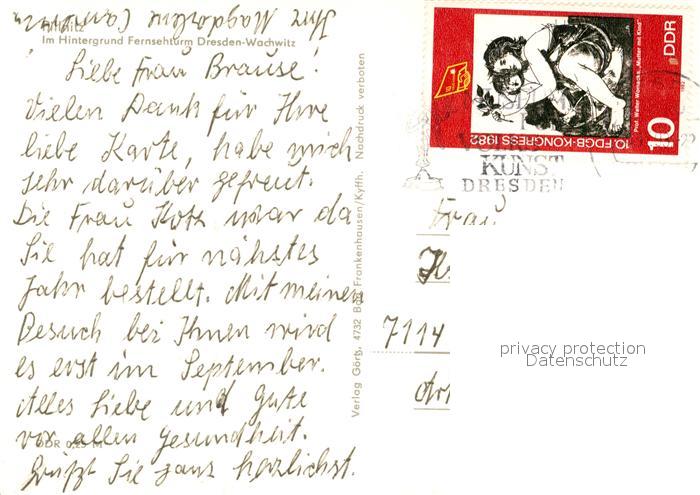 Pillnitz
Im Hintergrund Fernsehturm Dresden-Wachwitz
Liebe Frau Brause!
Vielen Dank für Ihre
liebe Karte, habe mich
sehr darüber gefreut.
Die Frau Kotz war da
Sie hat für nähstes
Jahr bestellt. Mit meinen
Besuch bei Ihnen wird
es erst im September.
Alles Liebe und Gute
vor allen Gesundheit.
Grüßt Sie ganz herzlichst.
Ihre Magdalena
DDR 0,25 M
Verlag Görtz, 4732 Bad Frankenhausen/Kyffh. Nachdruck verboten
10. FDGB-KONGRESS 1982
Prof. Walter Womacka, „Mutter mit Kind"
DDR
10
KUNST
DRESDEN
Frau
7114
privacy protection
Datenschutz